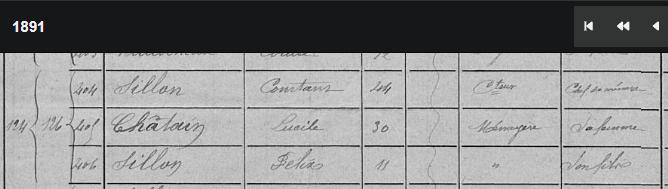 1891
404 Sillon Constant 44 Cteur Chef de ménage
124 126 405 Châtain Lucile 30 Ménagère Sa femme
406 Sillon Felix 11 " Son fils